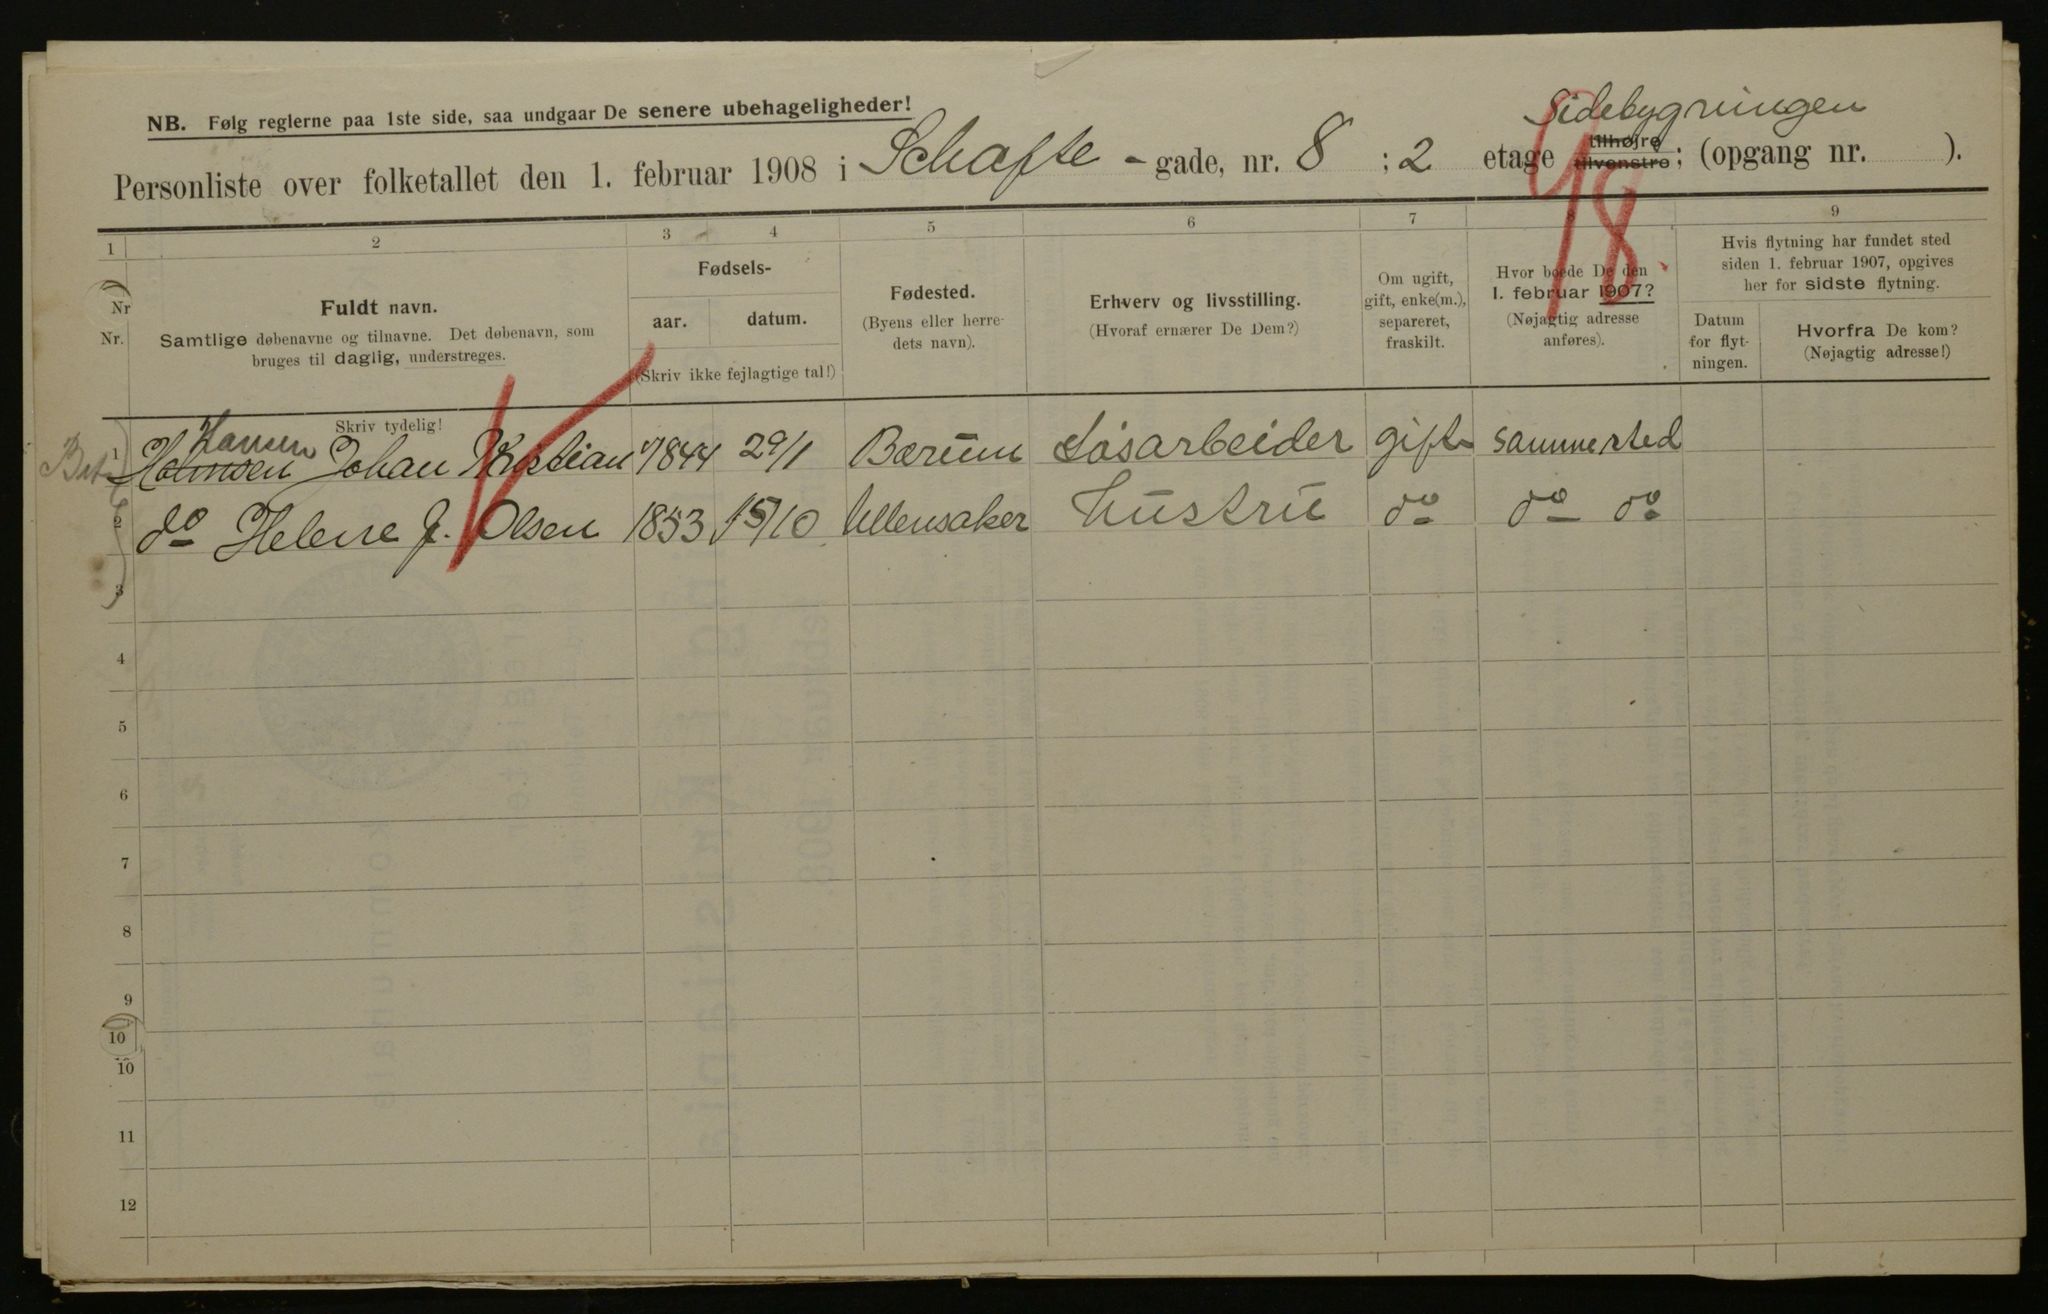 NB. Følg reglerne paa 1ste side, saa undgaar De senere ubehageligheder!
Sidebygningen
Personliste over folketallet den 1. februar 1908 i Schafte - gade, nr. 8 : 2 etage tilhøjre tilvenstre; (opgang nr. ).
98
1 2 3 4 5 6 7 8 9
Nr
Nr.
Fuldt navn.
Samtlige døbenavne og tilnavne. Det døbenavn, som
bruges til daglig, understreges.
Skriv tydelig!
Fødsels-
aar. datum.
(Skriv ikke fejlagtige tal!)
Fødested.
(Byens eller herre-
dets navn).
Erhverv og livsstilling.
(Hvoraf ernærer De Dem?)
Om ugift,
gift, enke(m.),
separeret,
fraskilt.
Hvor boede De den
1. februar 1907?
(Nøjagtig adresse
anføres).
Hvis flytning har fundet sted
siden 1. februar 1907, opgives
her for sidste flytning.
Datum
for flyt-
ningen.
Hvorfra De kom?
(Nøjagtig adresse!)
Hansen
1 Holmsen Johan Kristian 1844 29/1 Bærum Løsarbeider gift sammested
2 do Helene J. Olsen 1853 15/10 Ullensaker Hustru do do do
3
4
5
6
7
8
9
10
10
11
12